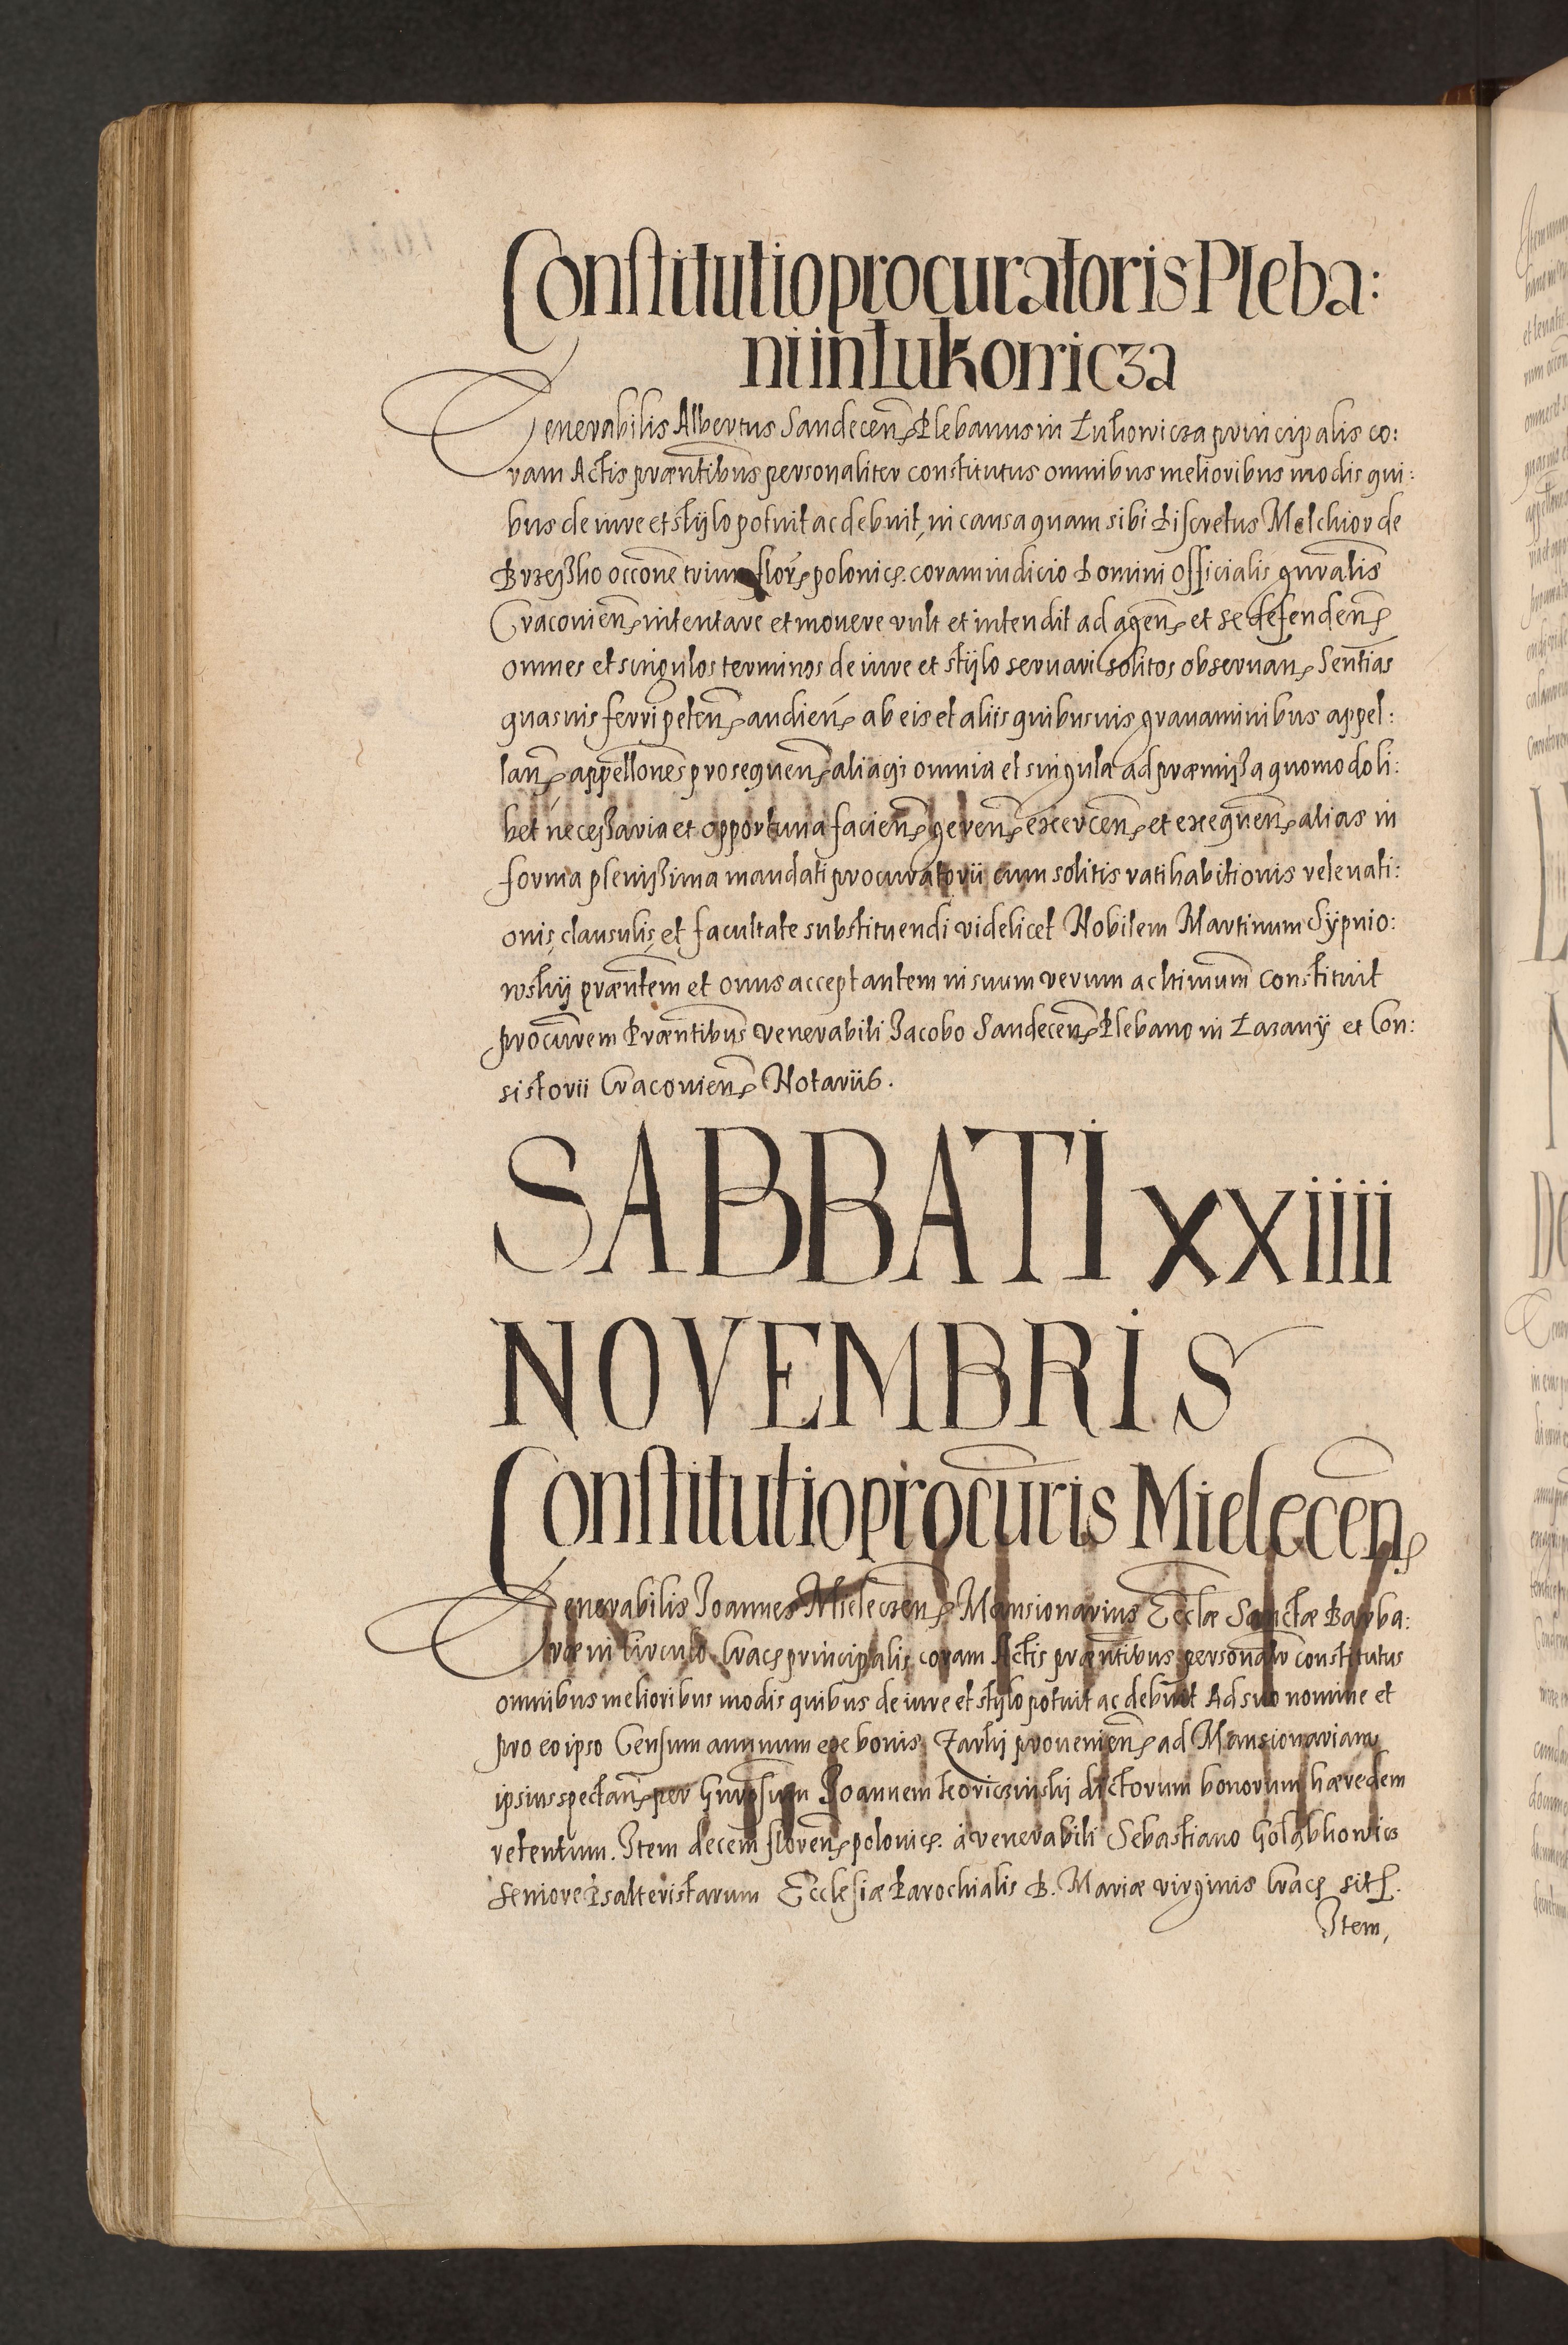 Constitutio procuratoris Pleba:
ni in Łukowicza
Venerabilis Albertus Sandeceñ Plebanus in Łukowicza principalis co:
ram Actis præntibus personaliter constitutus omnibus melioribus modis qui:
bus de iure et stÿlo potuit ac debuit, in causa quam sibi Discretus Melchior de
Brzeßko occone trium flor polonic. coram iudicio Domini Officialis gnralis
Cracovieñ intentare et movere vult et intendit ad ageñ et se defendeñ
omnes et singulos terminos de iure et stÿlo servari solitos observan Sentias
quasuis ferri peteñ audieñ ab eis et aliis quibusuis gravaminibus appel:
lañ appellones prosequeñ aliaqȝ omnia et singula ad præmißa quomodoli:
bet neceßaria et opportuna facieñ gereñ exerceñ et exequeñ alias in
forma plenißima mandati procuratorii cum solitis ratihabitionis relevati:
onis clausulis et facultate substituendi videlicet Nobilem Martinum Sÿpnio:
wskij præntem et onus acceptantem in suum verum ac ltimum constituit
procurem Præntibus venerabili Jacobo Sandeceñ Plebano in Łazanÿ et Con:
sistorii Cracovieñ Notariis.
SABBATI xxiiii
NOVEMBRIS
Constitutio procuris Mieleceñ
Venerabilis Joannes Mieleczeñ Mansionarius Ecclæ Sanctæ Barba:
ræ in Circulo Crac principalis coram Actis præntibus personalr constitutus
omnibus melioribus modis quibus de iure et stÿlo potuit ac debuit Ad suo nomine et
pro eo ipso Censum annuum exe bonis Zarki provenieñ ad Mansionariam
ipsius spectañ per Gnrosum Joannem keoriczinskj dictorum bonorum hæredem
retentum. Item decem floreñ polonic. à venerabili Sebastiano Goląbkowicz
Seniore Psalteristarum Ecclesiæ Parochialis B. Mariæ virginis Crac sit.
Item,